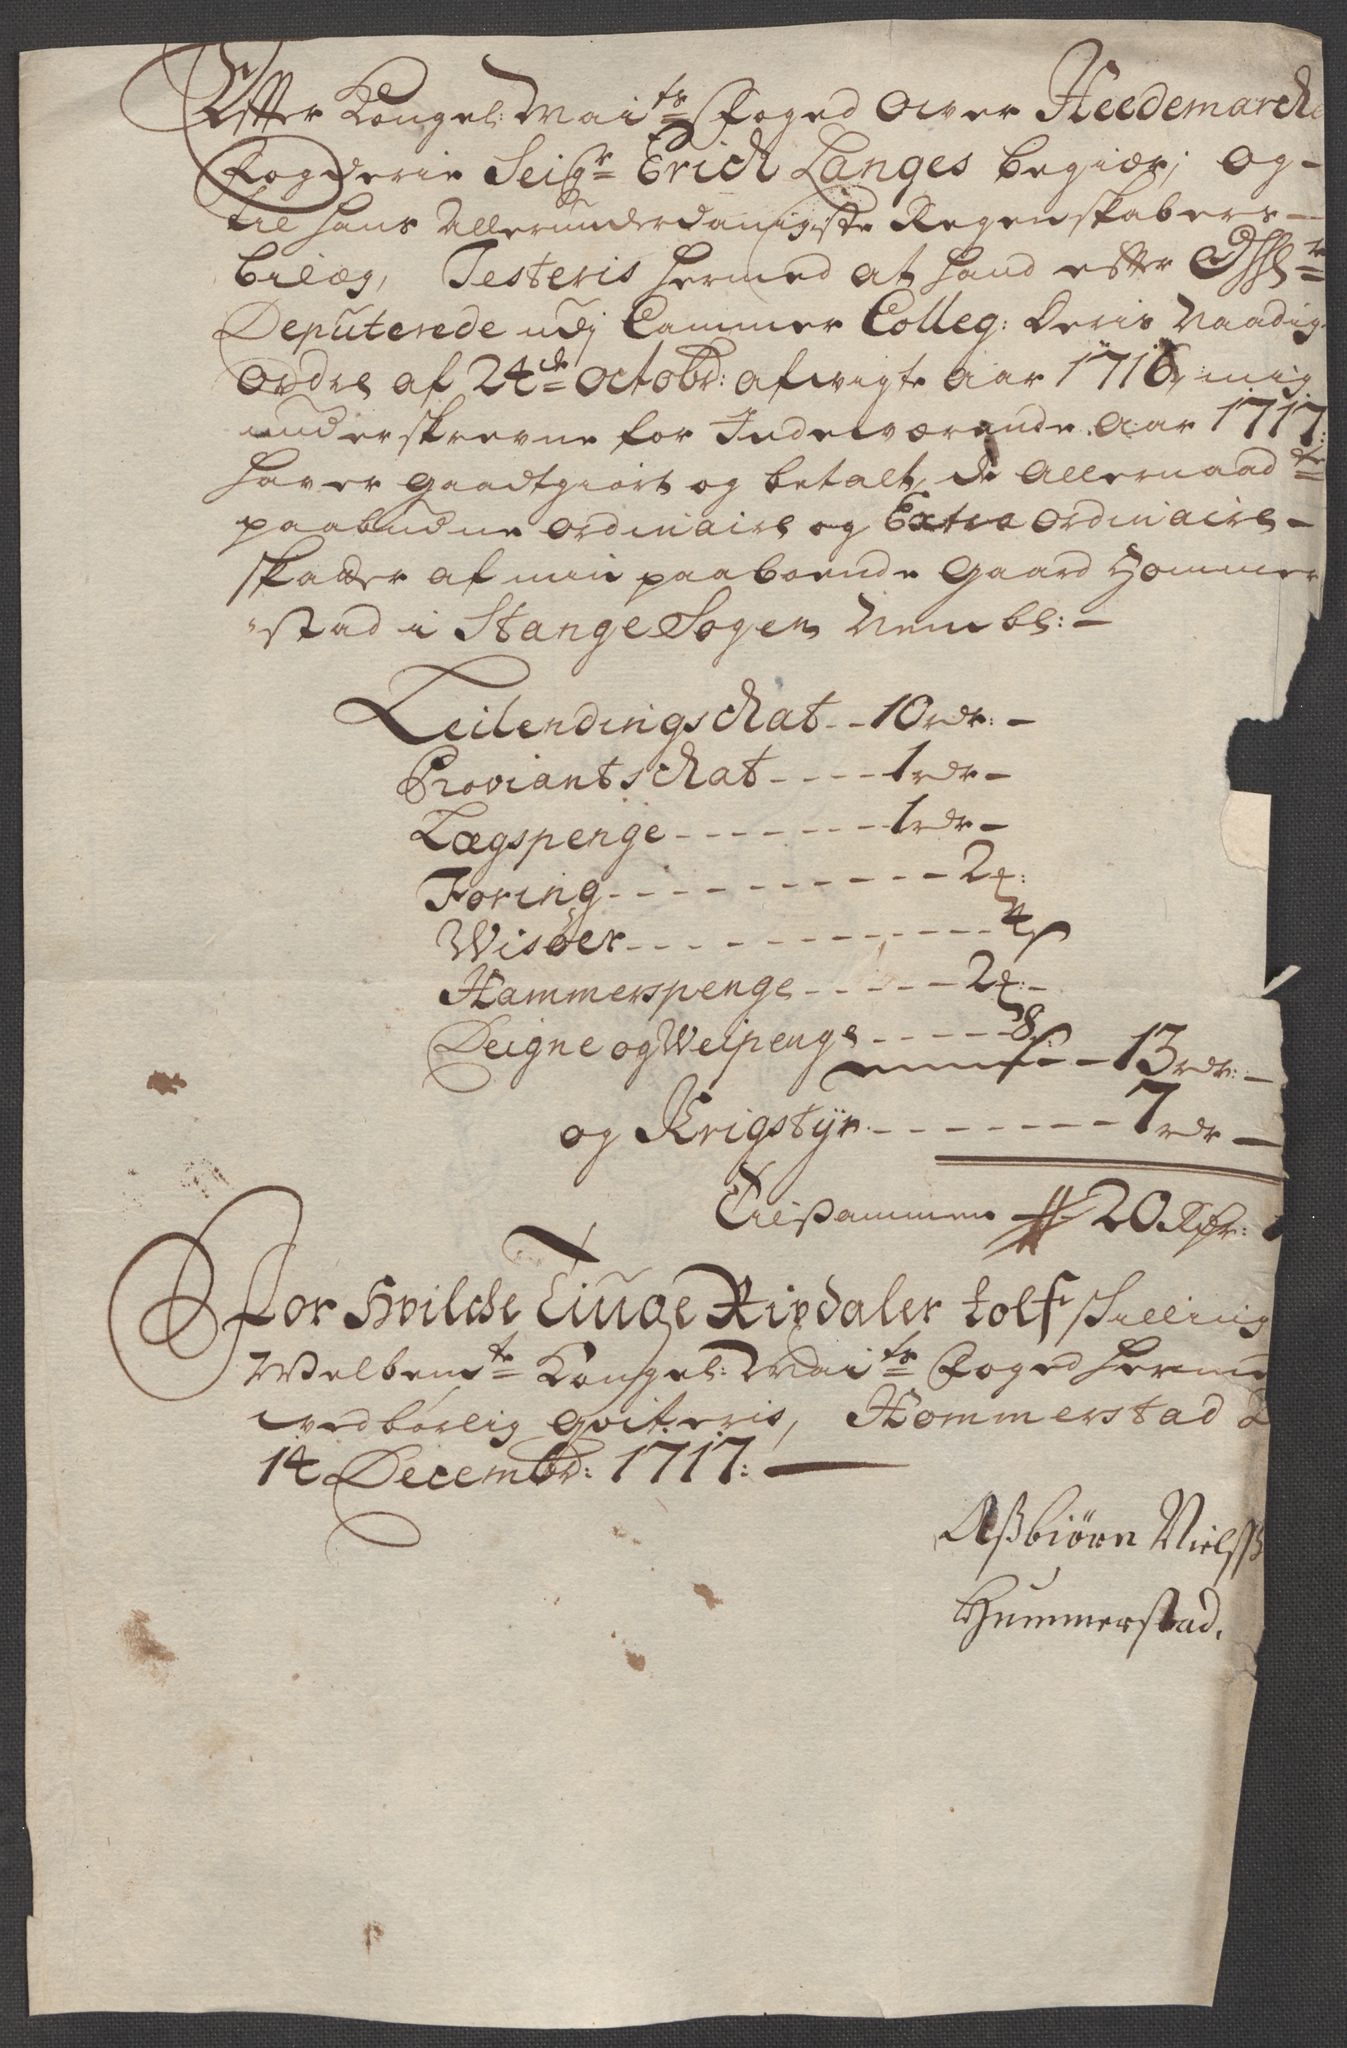 Effter Kongel: Mai:ts Foged over Heedemarchs
Fogderie Seig:r Erich Langes begiær, og
til hans Allerunderdanigste Regenskabers
bilag, Testeris hermed at hand effter
Deputerede udj Cammer Colleg: Deris Naadig
Ordre af 24de Octobr: afvigte Aar 1716, mig
underskrevne for Indeværende Aar 1717:
haver gaadtgiort og betalt, de Allernaadte
paabudne ordinaire og Extra ordinaire
skatter af min paaboende Gaard Hommer
stad i Stange Sogen Nembl:
Leilendingschat - - 10 rdr: -
Proviantschat - - - - 1 rdr -
Lægspenge - - - - - - - 1 rdr -
Foring - - - - - - - - - - 2
Wisøer - - - - - - - - - - - 4 s
Hammerspenge - - - - - 2
Deigne og Weipenge - - - - - 8
- - 13 rdr: -
og Krigstyr. - - - - - - - - 7 rdr -
Tilsammen 20 Rdr:
For Hvilche Tiuge Rixdaler tolf skilling
Welbemte Kongel: Mai:ts Foged herm
vedbørlig qviteris, Hommerstad d
14 Decembr: 1717:
Asbiørn Nielss
Hummerstad.